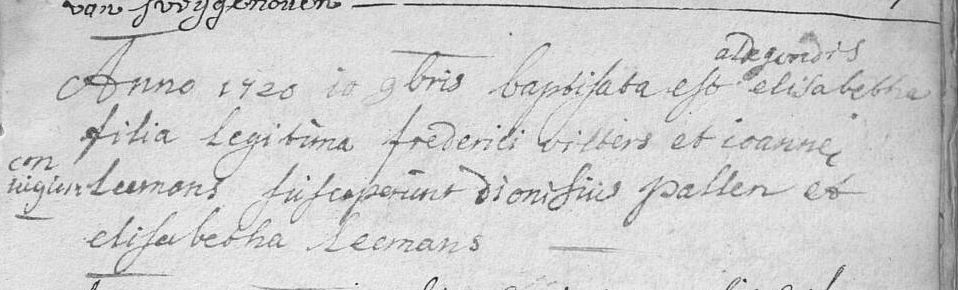 van
aldegondis
Anno 1720 10 9bris baptisata est elisabetha
filia legitima frederici vilters et ioannei
con
iugum leemans susceperunt dionisius pallen et
elisabetha leemans